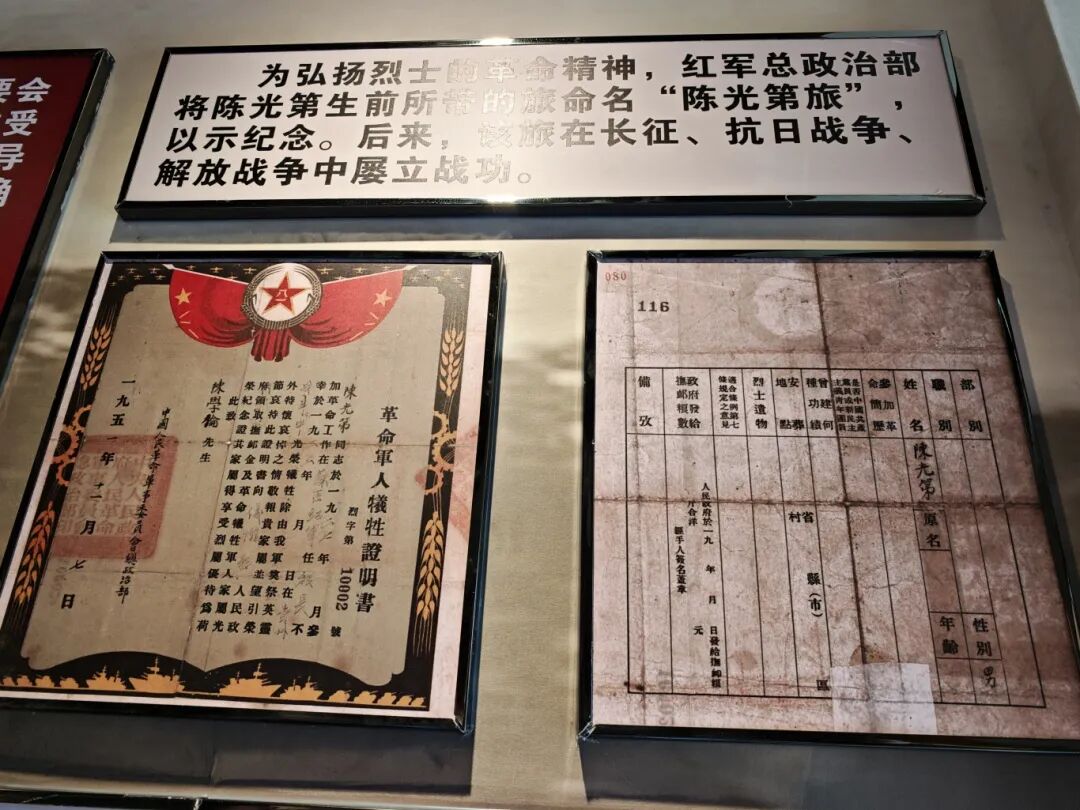 为弘扬烈士的革命精神，红军总政治部
将陈光第生前所带的旅命名“陈光第旅”，
以示纪念。后来，该旅在长征、抗日战争、
解放战争中屡立战功。
要会
受
导
确
八一
革命軍人犧牲證明書
烈字第 10002 號
陳光第同志於一九二七年 月參
加革命工作在 任 長不
幸於一九三 年 月 日在
光榮犧牲除由我軍奠祭英靈
外特懷哀悼之情敬報貴家屬並望引榮
節哀持此證明書向 人民政
府領取撫䘏金及革命犧牲軍人家屬光
榮紀念證其家屬得享受烈屬優待爲荷
此致
陳學 先生
中國人民革命軍事委員會總政治部
一九五一年十一月七日
080
116
部別
職別
姓名
陳光第
原名
性別
男
年齡
參加革命簡歷
是否中國共產黨員或新民主主義青年團員
曾建何種功績
安葬地點
省
縣（市）
區
村
烈士遺物
適合條例第七條規定之意見
政府發給撫䘏糧數
人民政府於一九 年 月 日發給撫䘏糧
斤合洋 元
經手人簽名蓋章
備攷